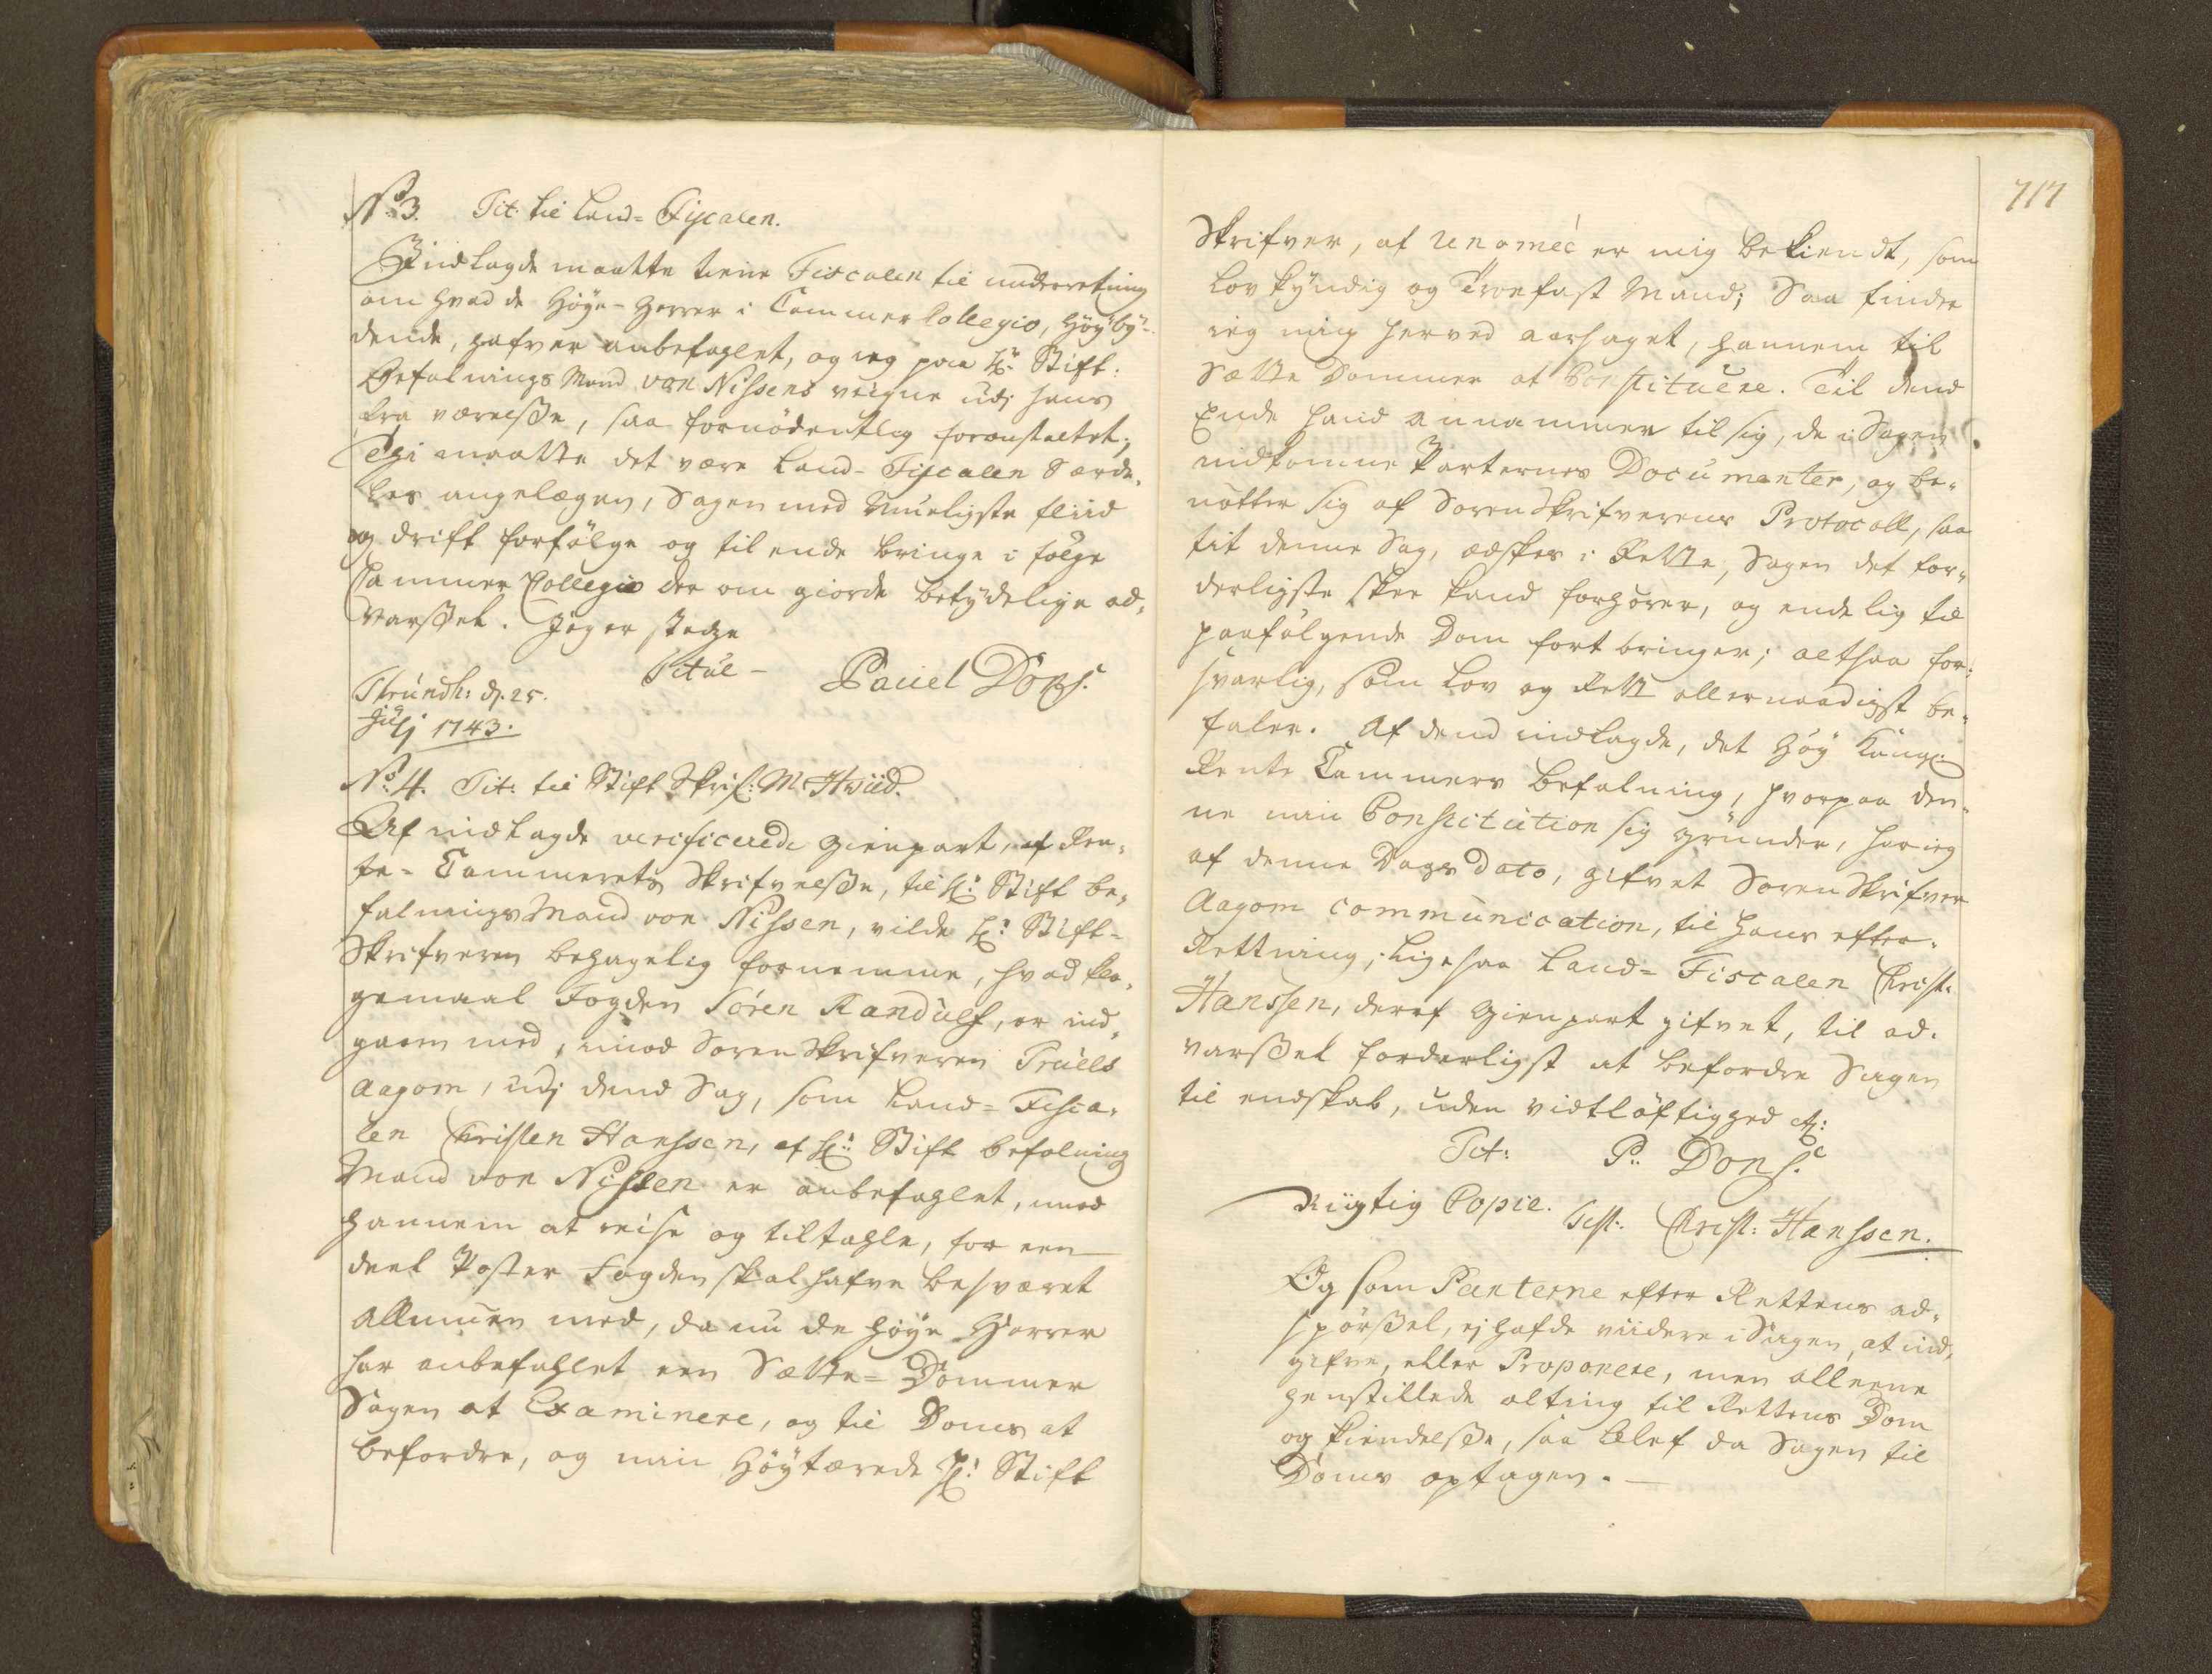 No 3. Tit: til Land-Fiscalen.
Indlagde maatte tiene Fiscalen til underretning
om hvad de Høye-Herrer i CammerCollegio, Høybÿ-
dende, hafver anbefahlet, og ieg paa Hr: Stift-
Befalnings Mand von Nissens veigne udj hans
fra værelsse, saa fornødentlig foranstaltet;
Thi maatte det være Land-Fiscalen Særde-
les angelægen, Sagen med Mueligste fliid
og drift forfølge og til ende bringe i følge
Cammer Collegio der om giorde betydelige ad-
varssel. Jeg er stedze
Titul- Pauel Dons.
Trundh: d. 25.
Julj 1743.
No 4. Tit: til Stift Skrif: Mr Hwiid.
Af indlagde verificerede Gienpart, af Ren-
te-Cammerets Skrifvelsse, til Hr: Stift be-
falningsMand von Nissen, vilde Hr: Stift-
Skrifveren behagelig fornemme, hvad kla-
gemaal Fogden Søren Randulf, er ind-
gaaen med, imod Sorenskrifveren Truels
Aagom, udj dend Sag, som Land-Fisca-
len Christen Hanssen, af Hr: Stift befalning
Mand von Nissen er anbefahlet, imod
hannem at reise og tiltahle, for een
deel Poster Fogden skal hafve besværet
Allmuen med, da nu de høye Herrer
har anbefahlet een Sætte-Dommer
Sagen at Examinere, og til Doms at
befordre, og min Høytærede Hr: Stift
717
Skrifver, af renomeé er mig bekiendt, som
Lovkÿndig og Troefast Mand; Saa finder
ieg mig herved aarsaget, hannem til
Sætte Dommer at Constituere. Til dend
Ende hand annammer til sig, de i Sagen
indkomne Parternes Documenter, og be-
nötter sig af Sorenskrifverens Protocoll, saa
tit denne Sag, ædskes i Rette, Sagen det for-
derligste skee kand forhører, og endelig til
paafølgende Dom fort bringer; altsaa for-
svarlig, som Lov og Rett allernaadigst be-
faler. Af dend indlagde, det Høy Kongl:
Rente Cammers befalning, hvorpaa den-
ne min Constitution sig grunder, har ieg
af denne Dags Dato, gifvet Sorenskrifver
Aagom communication, til hans efter-
Rettning, ligesaa Land-Fiscalen Christ:
Hanssen, deraf Gienpart gifvet, til ad-
varssel forderligst at befordre Sagen
til endskab, uden vidtløftighed etc:
Tit: P: Dons.
Rigtig Copie. Test: Christ: Hanssen.
Og som Parterne efter Rettens ad-
spørssel, ej hafde viidere i Sagen, at ind-
gifve, eller Proponere, men alleene
henstillede alting til Rettens Dom
og kiendelsse, saa blef da Sagen til
Doms optagen.